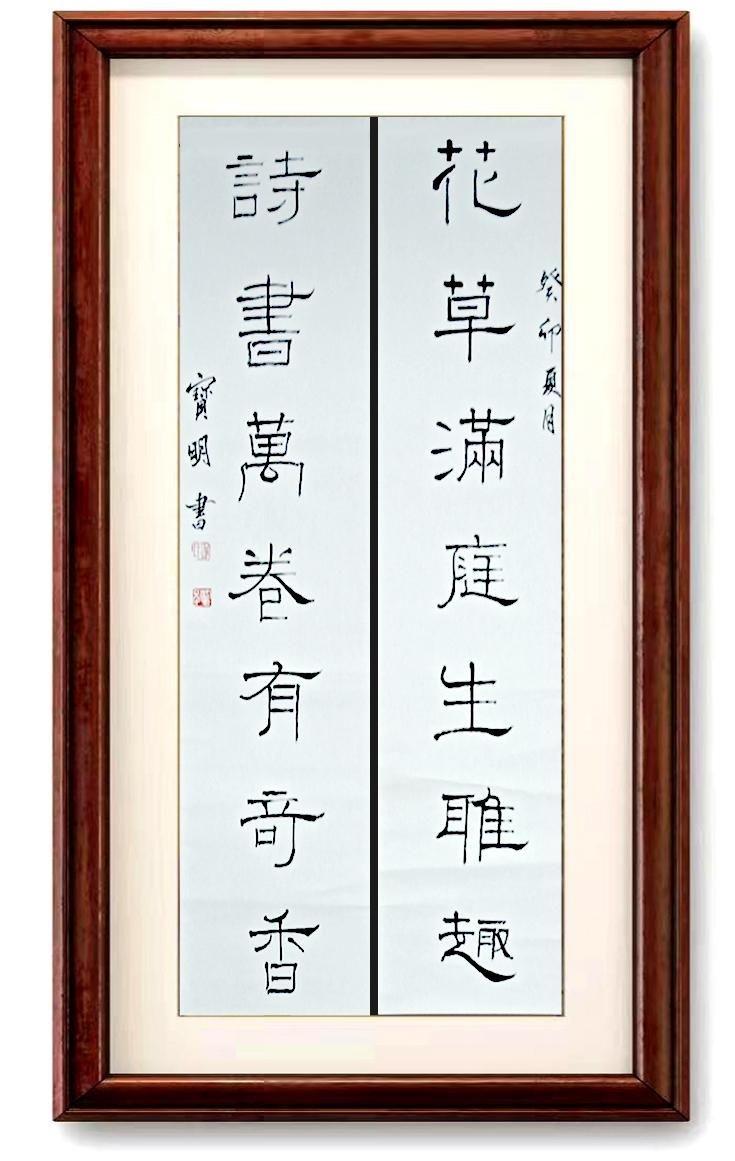 花草滿庭生雅趣
癸卯夏月
詩書萬卷有奇香
寶明書